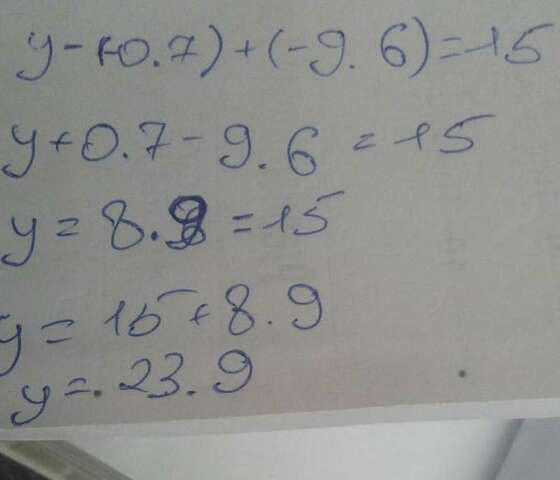 y-(-0.7)+(-9.6)=15
y+0.7-9.6=15
y=8.9=15
y=15+8.9
y=23.9